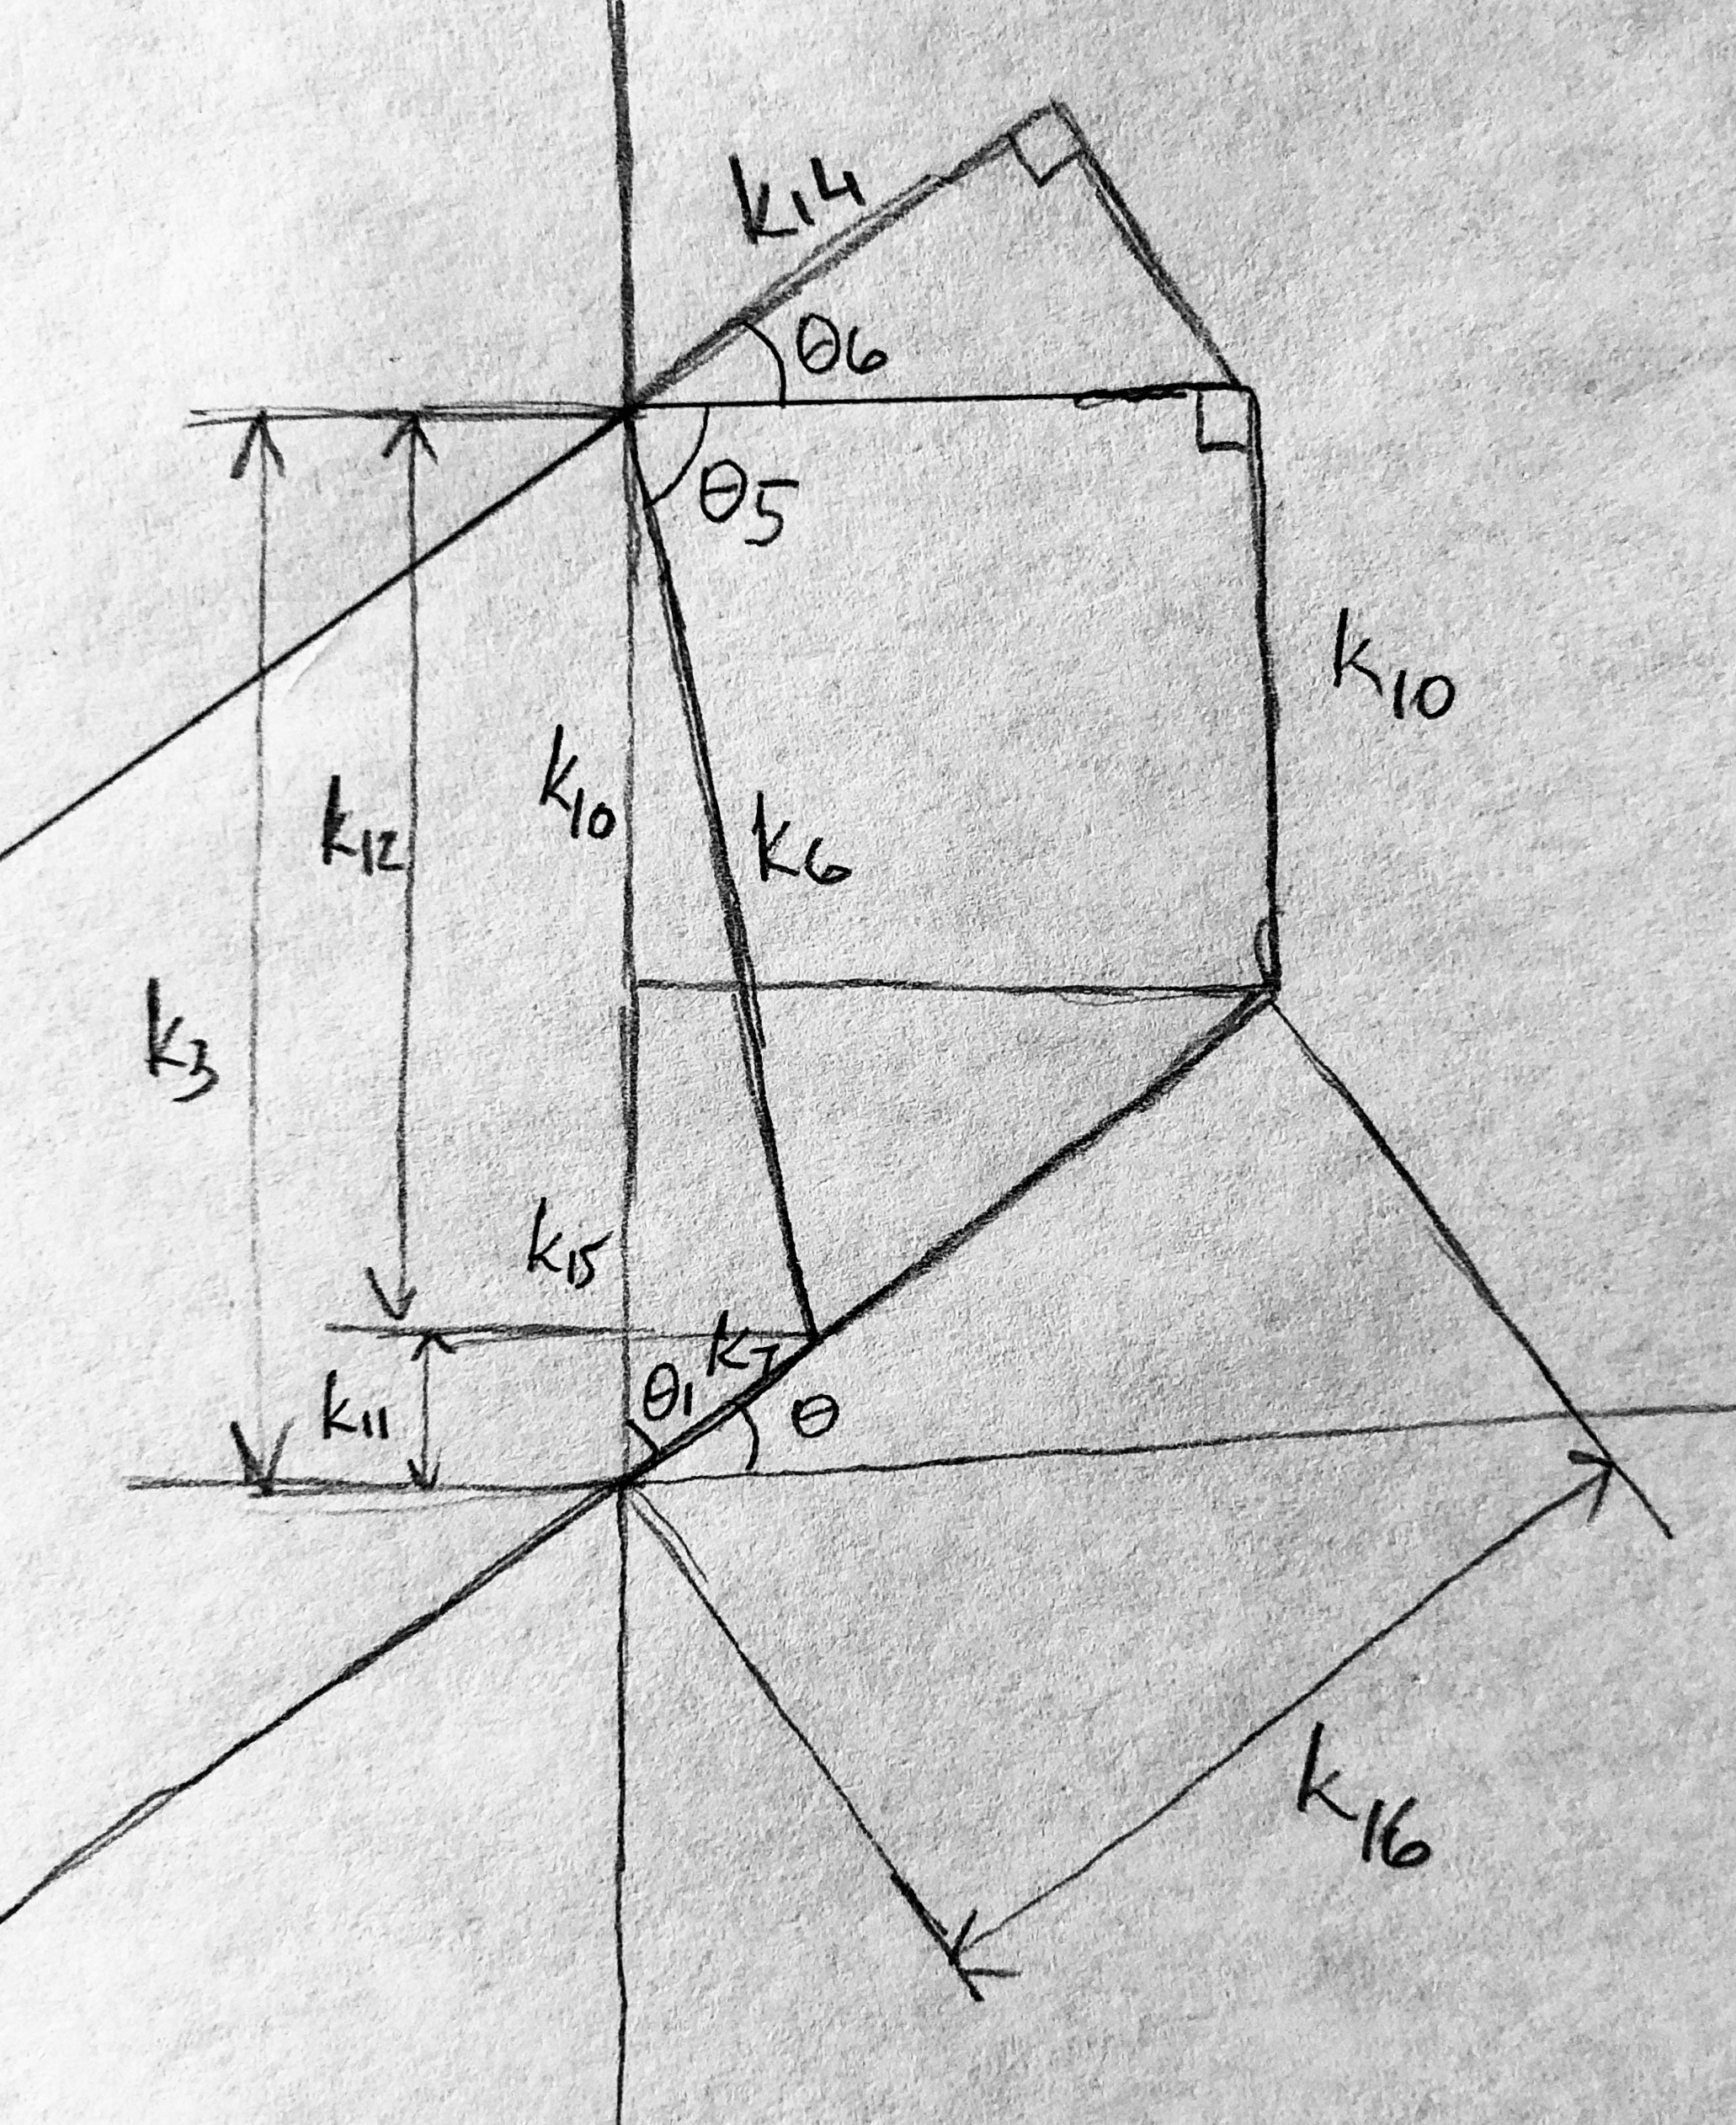 k14
θ6
θ5
k10
k10
k12
k6
k3
k15
k7
θ1
k11
θ
k16